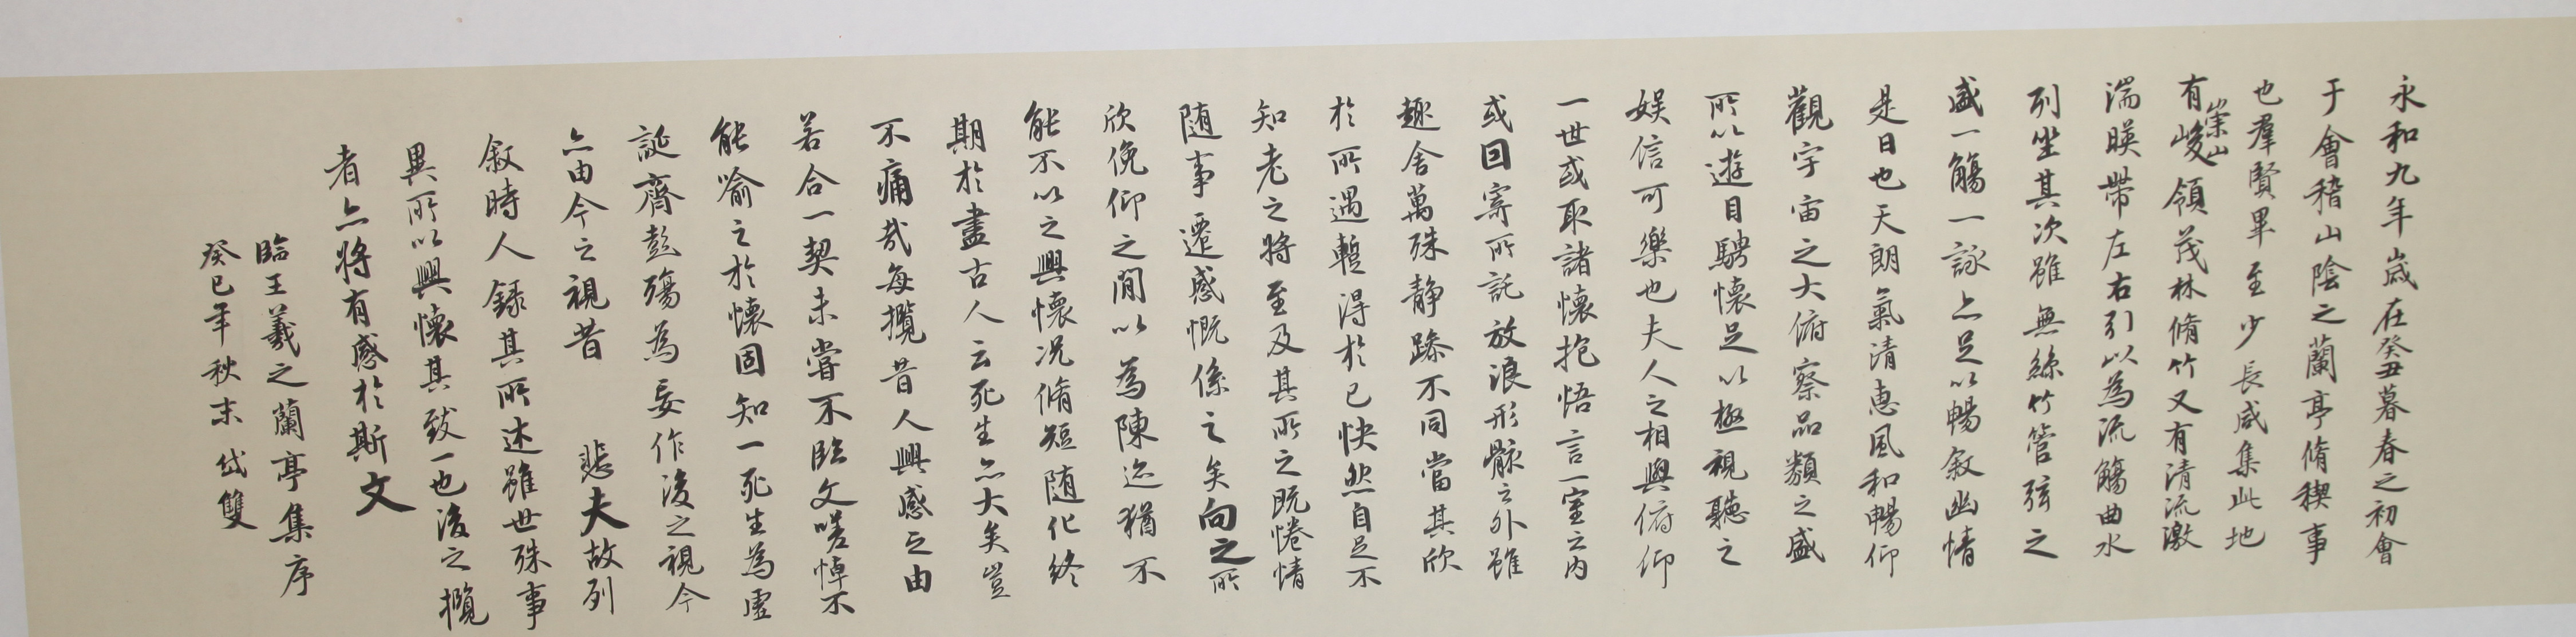 永和九年歲在癸丑暮春之初會
于會稽山陰之蘭亭脩稧事
也羣賢畢至少長咸集此地
有崇山峻領茂林脩竹又有清流激
湍暎帶左右引以為流觴曲水
列坐其次雖無絲竹管弦之
盛一觴一詠亦足以暢敘幽情
是日也天朗氣清惠風和暢仰
觀宇宙之大俯察品類之盛
所以遊目騁懷足以極視聽之
娛信可樂也夫人之相與俯仰
一世或取諸懷抱悟言一室之內
或因寄所託放浪形骸之外雖
趣舍萬殊靜躁不同當其欣
於所遇暫得於己快然自足不
知老之將至及其所之既惓情
隨事遷感慨係之矣向之所
欣俛仰之間以為陳迹猶不
能不以之興懷況脩短隨化終
期於盡古人云死生亦大矣豈
不痛哉每攬昔人興感之由
若合一契未嘗不臨文嗟悼不
能喻之於懷固知一死生為虛
誕齊彭殤為妄作後之視今
亦由今之視昔 悲夫故列
敘時人錄其所述雖世殊事
異所以興懷其致一也後之攬
者亦將有感於斯文
臨王羲之蘭亭集序
癸巳年秋末 岱雙